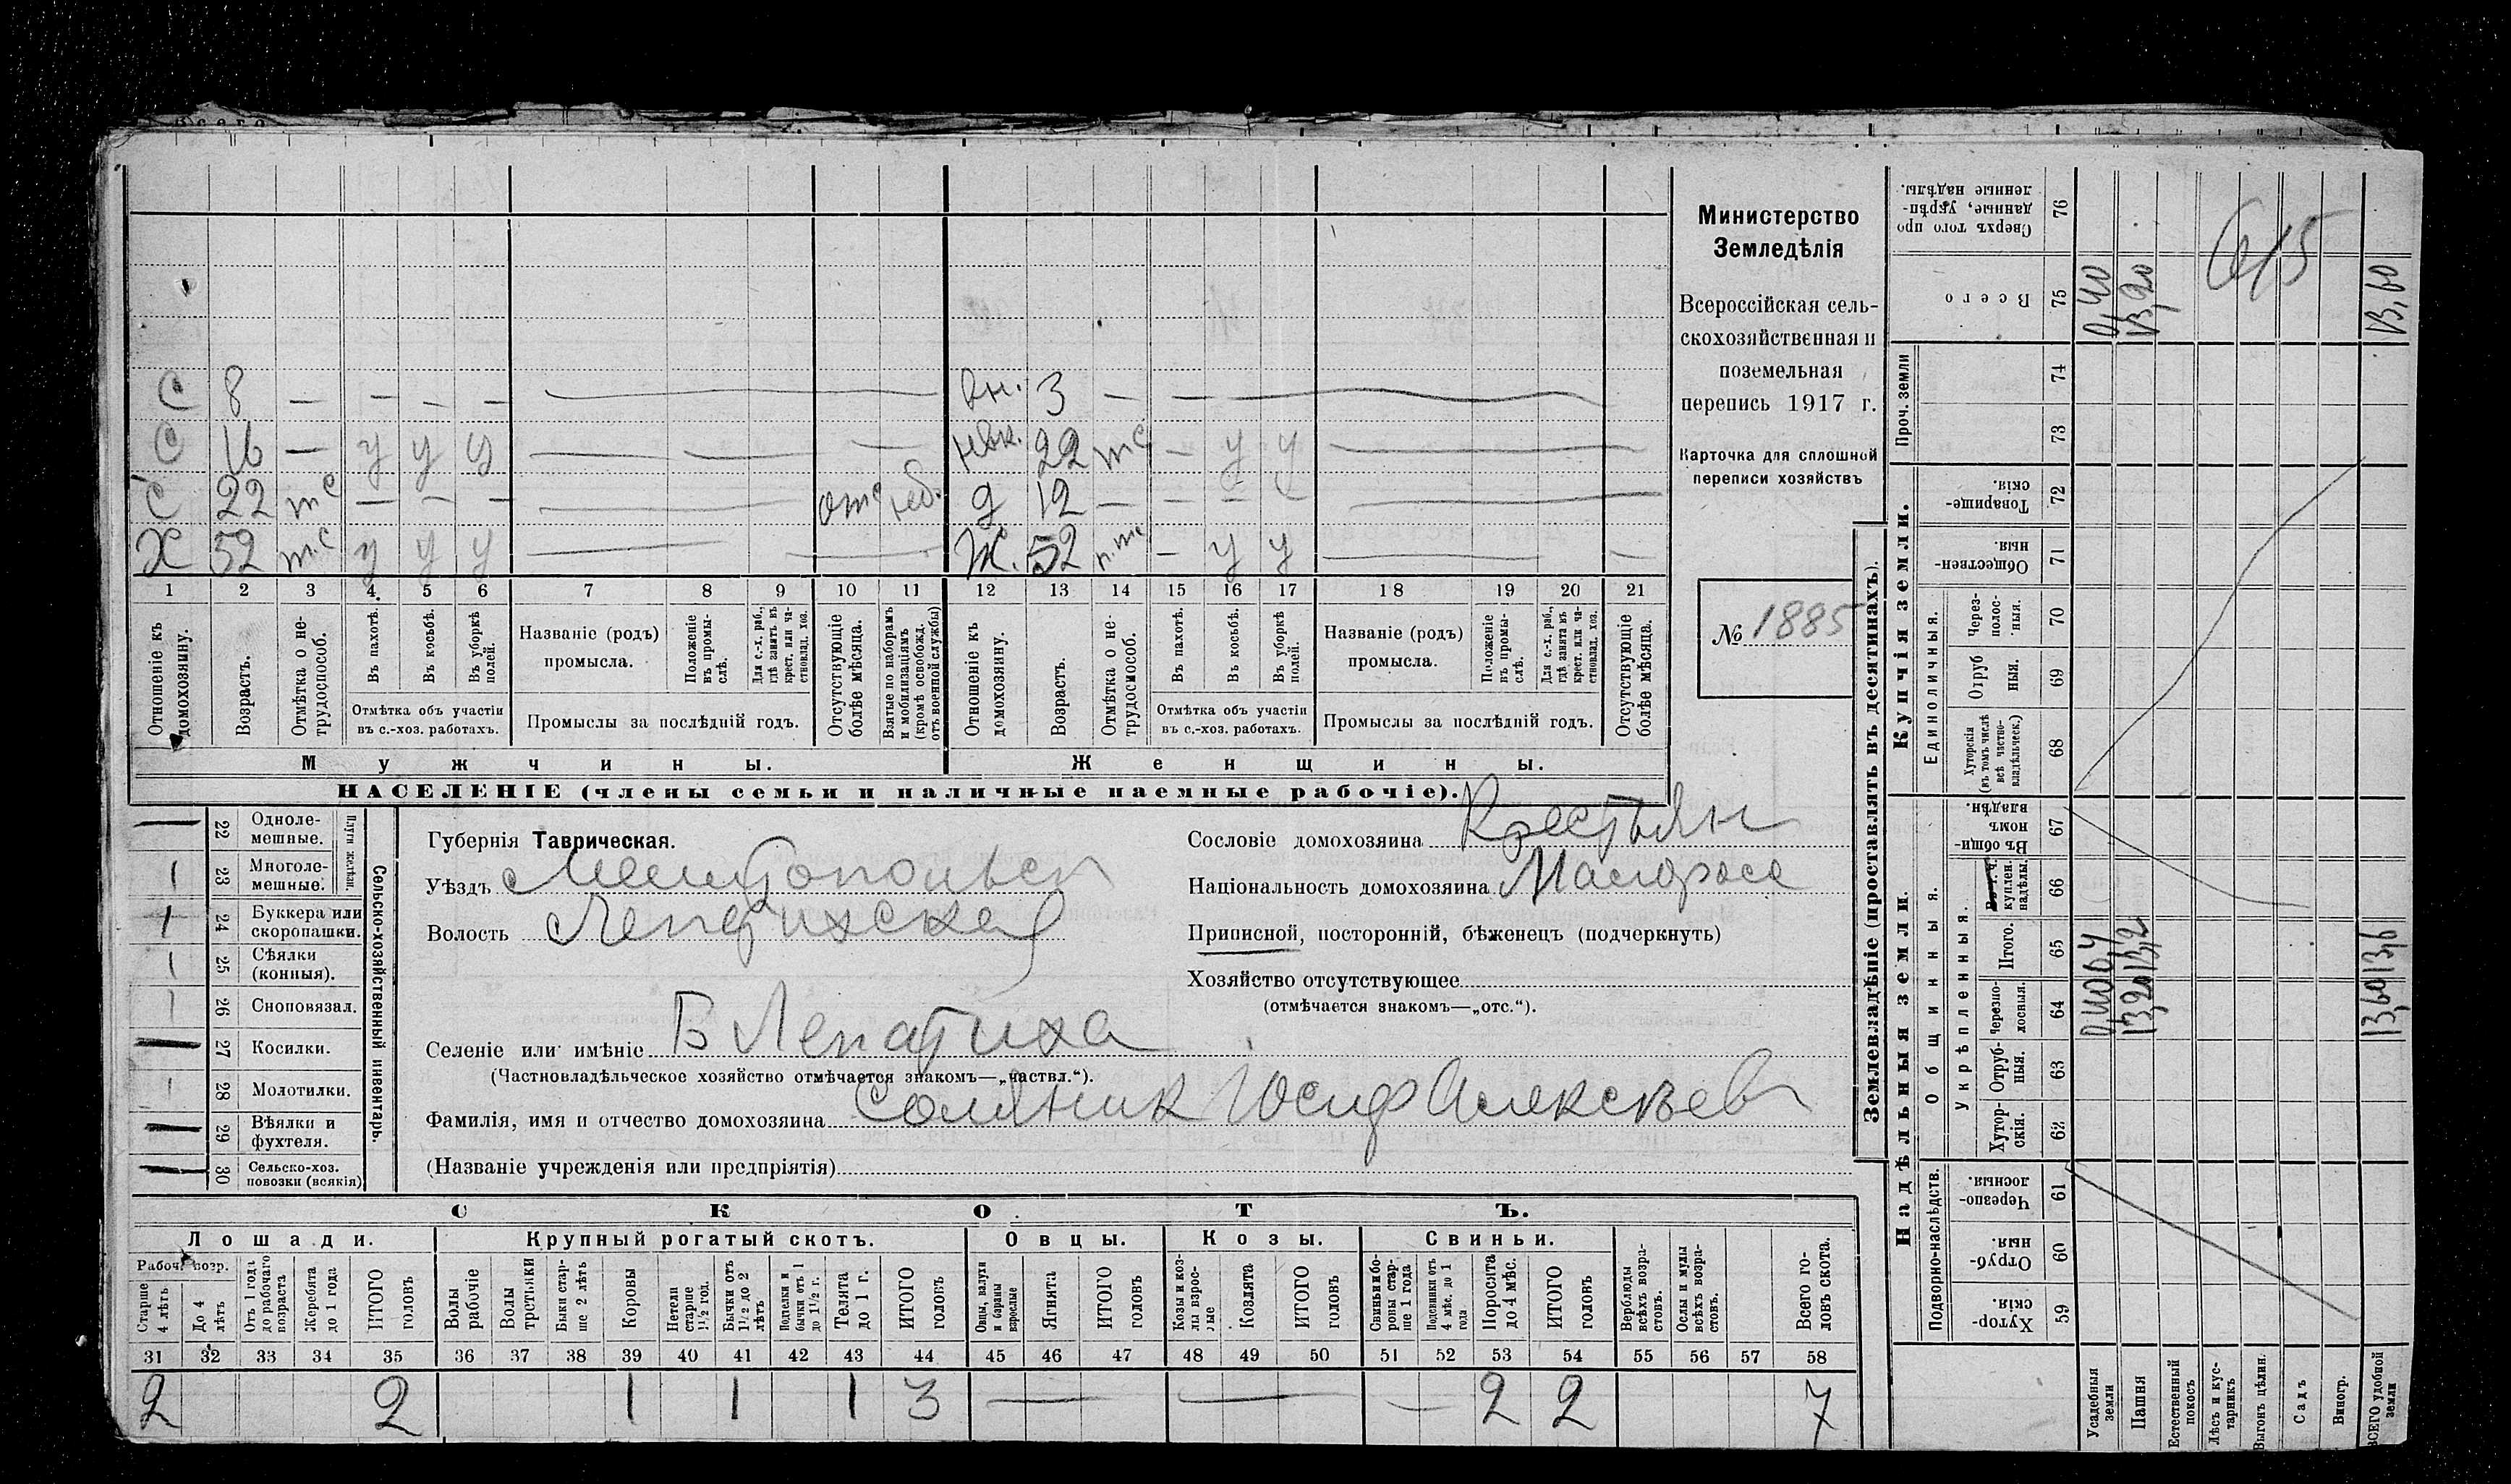 Всего
С 8 — — — — вн. 3 — —
С 16 — у у у — — — невк. 22 тс — у у —
С 22 тс — — — — отс неб. д 12 — — — — —
Х 52 т.с у у у — — Ж. 52 п.тс — у у — —
1 2 3 4 5 6 7 8 9 10 11 12 13 14 15 16 17 18 19 20 21
Отношеніе къ домохозяину.
Возрастъ.
Отмѣтка о нетрудоспособ.
Въ пахотѣ.
Въ косьбѣ.
Въ уборкѣ полей.
Отмѣтка объ участіи въ с.-хоз. работахъ.
Названіе (родъ) промысла.
Положеніе въ промыслѣ.
Для с.-х. раб., гдѣ занятъ въ крест. или частновлад. хоз.
Промыслы за послѣдній годъ.
Отсутствующіе болѣе мѣсяца.
Взятые по наборамъ и мобилизаціямъ (кромѣ освобожд. отъ военной службы)
Отношеніе къ домохозяину.
Возрастъ.
Отмѣтка о нетрудосмособ.
Въ пахотѣ.
Въ косьбѣ.
Въ уборкѣ полей.
Отмѣтка объ участіи въ с.-хоз. работахъ.
Названіе (родъ) промысла.
Положеніе въ промыслѣ.
Для с.-х. раб., гдѣ занята въ крест. или частновлад. хоз.
Промыслы за послѣдній годъ.
Отсутствующіе болѣе мѣсяца.
Мужчины. Женщины.
НАСЕЛЕНІЕ (члены семьи и наличные наемные рабочіе).
Министерство
Земледѣлія
Всероссійская сель-
скохозяйственная и
поземельная
перепись 1917 г.
Карточка для сплошной
переписи хозяйствъ
№ 1885
— 22 Однолемешные.
1 23 Многолемешные.
Плуги желѣзн.
1 24 Буккера или скоропашки.
1 25 Сѣялки (конныя).
1 26 Сноповязал.
— 27 Косилки.
1 28 Молотилки.
— 29 Вѣялки и фухтеля.
— 30 Сельско-хоз. повозки (всякія)
Сельско-хозяйственный инвентарь.
Губернія Таврическая.
Уѣздъ Мелитопольск
Волость Лепетихская
Селеніе или имѣніе Б Лепатиха
(Частновладѣльческое хозяйство отмѣчается знакомъ—„частвл.“).
Фамилія, имя и отчество домохозяина Соляник Іосиф Алексѣев
(Названіе учрежденія или предпріятія)
Сословіе домохозяина Крестьян
Національность домохозяина Малоросс
Приписной, посторонній, бѣженецъ (подчеркнуть)
Хозяйство отсутствующее
(отмѣчается знакомъ—„отс.“).
СКОТЪ.
Лошади. Крупный рогатый скотъ. Овцы. Козы. Свиньи.
Рабоч. возр.
Старше 4 лѣтъ
До 4 лѣтъ
Отъ 1 года до рабочаго возраста
Жеребята до 1 года
ИТОГО головъ
Волы рабочіе
Волы третьяки
Быки старше 2 лѣтъ
Коровы
Нетели старше 1 1/2 год.
Бычки отъ 1 1/2 до 2 лѣтъ
Подтелки и бычки отъ 1 до 1 1/2 г.
Телята до 1 г.
ИТОГО головъ
Овцы, валухи и бараны взрослые
Ягнята
ИТОГО головъ
Козы и козлы взрослые
Козлята
ИТОГО головъ
Свиньи и боровы старше 1 года
Подсвинки отъ 4 мѣс. до 1 года
Поросята до 4 мѣс.
ИТОГО головъ
Верблюды всѣхъ возрастовъ.
Ослы и мулы всѣхъ возрастовъ.
Всего головъ скота.
31 32 33 34 35 36 37 38 39 40 41 42 43 44 45 46 47 48 49 50 51 52 53 54 55 56 57 58
2 2 1 1 1 3 — — — 2 2 7
Землевладѣніе (проставлять въ десятинахъ).
Купчія земли.
Надѣльныя земли.
Сверхъ того проданные, укрѣпленные надѣлы. 76
Всего 75 0,40 13,20 13,60
615
Проч. земли
74
73
Товарищескія. 72
Общественныя. 71
Единоличныя.
Черезполосныя. 70
Отрубныя. 69
Хуторскія (въ томъ числѣ всѣ частновладѣльческ.) 68
Общинныя.
Въ общинномъ владѣн. 67
куплен. надѣлы. 66
Укрѣпленныя.
Итого. 65 0,4 13,2 13,6
Черезполосныя. 64 0,40 13,20 13,60
Отрубныя. 63
Хуторскія. 62
Подворно-наслѣдств.
Черезполосныя. 61
Отрубныя. 60
Хуторскія. 59
Усадебныя земли
Пашня
Естественный покосъ
Лѣсъ и кустарникъ
Выгонъ цѣлин.
Садъ
Виногр.
ВСЕГО удобной земли